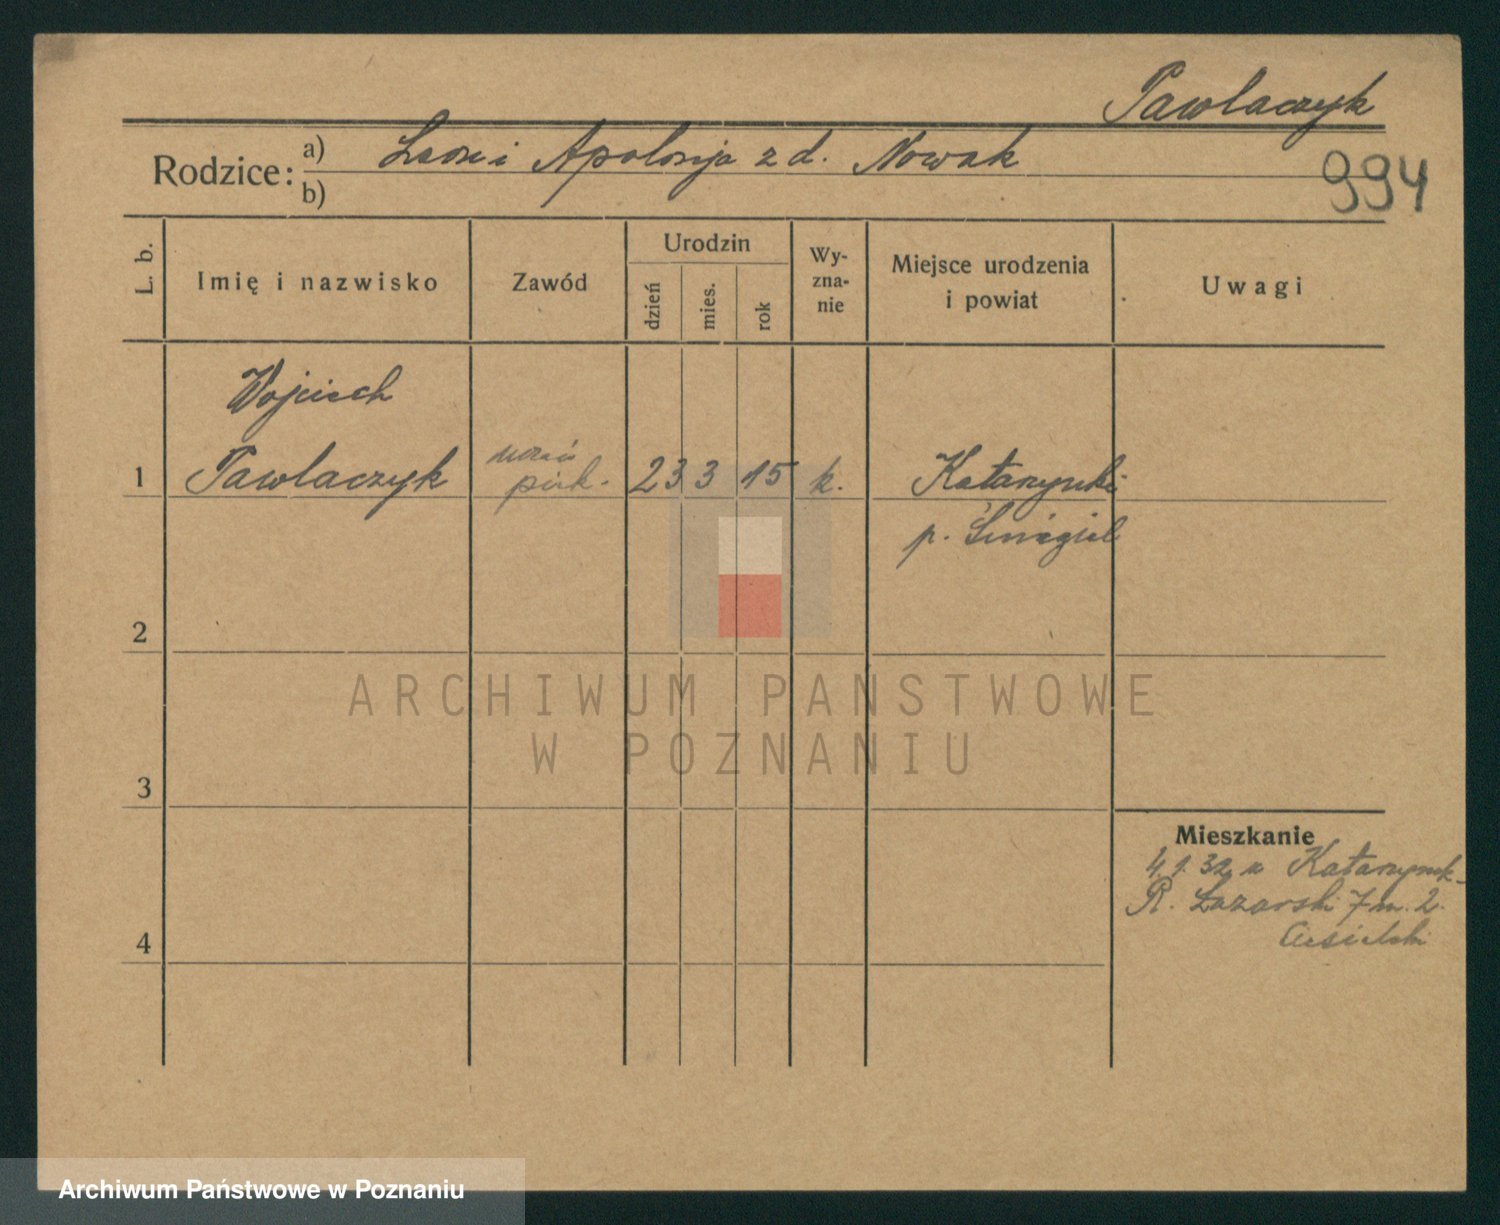 Pawlaczyk
Rodzice: a) Leon i Apolonja z d. Nowak
b)
994
L. b.
Imię i nazwisko
Zawód
Urodzin
dzień
mies.
rok
Wy-
zna-
nie
Miejsce urodzenia
i powiat
Uwagi
Wojciech
1 Pawlaczyk
uczeń
piek.
23 3 15 k. Katarzynki
p. Śmigiel
2
3
4
ARCHIWUM PAŃSTWOWE
W POZNANIU
Mieszkanie
4.1.32 z Katarzynk-
R. Łazarski 7 m. 2.
Ciesielski
Archiwum Państwowe w Poznaniu